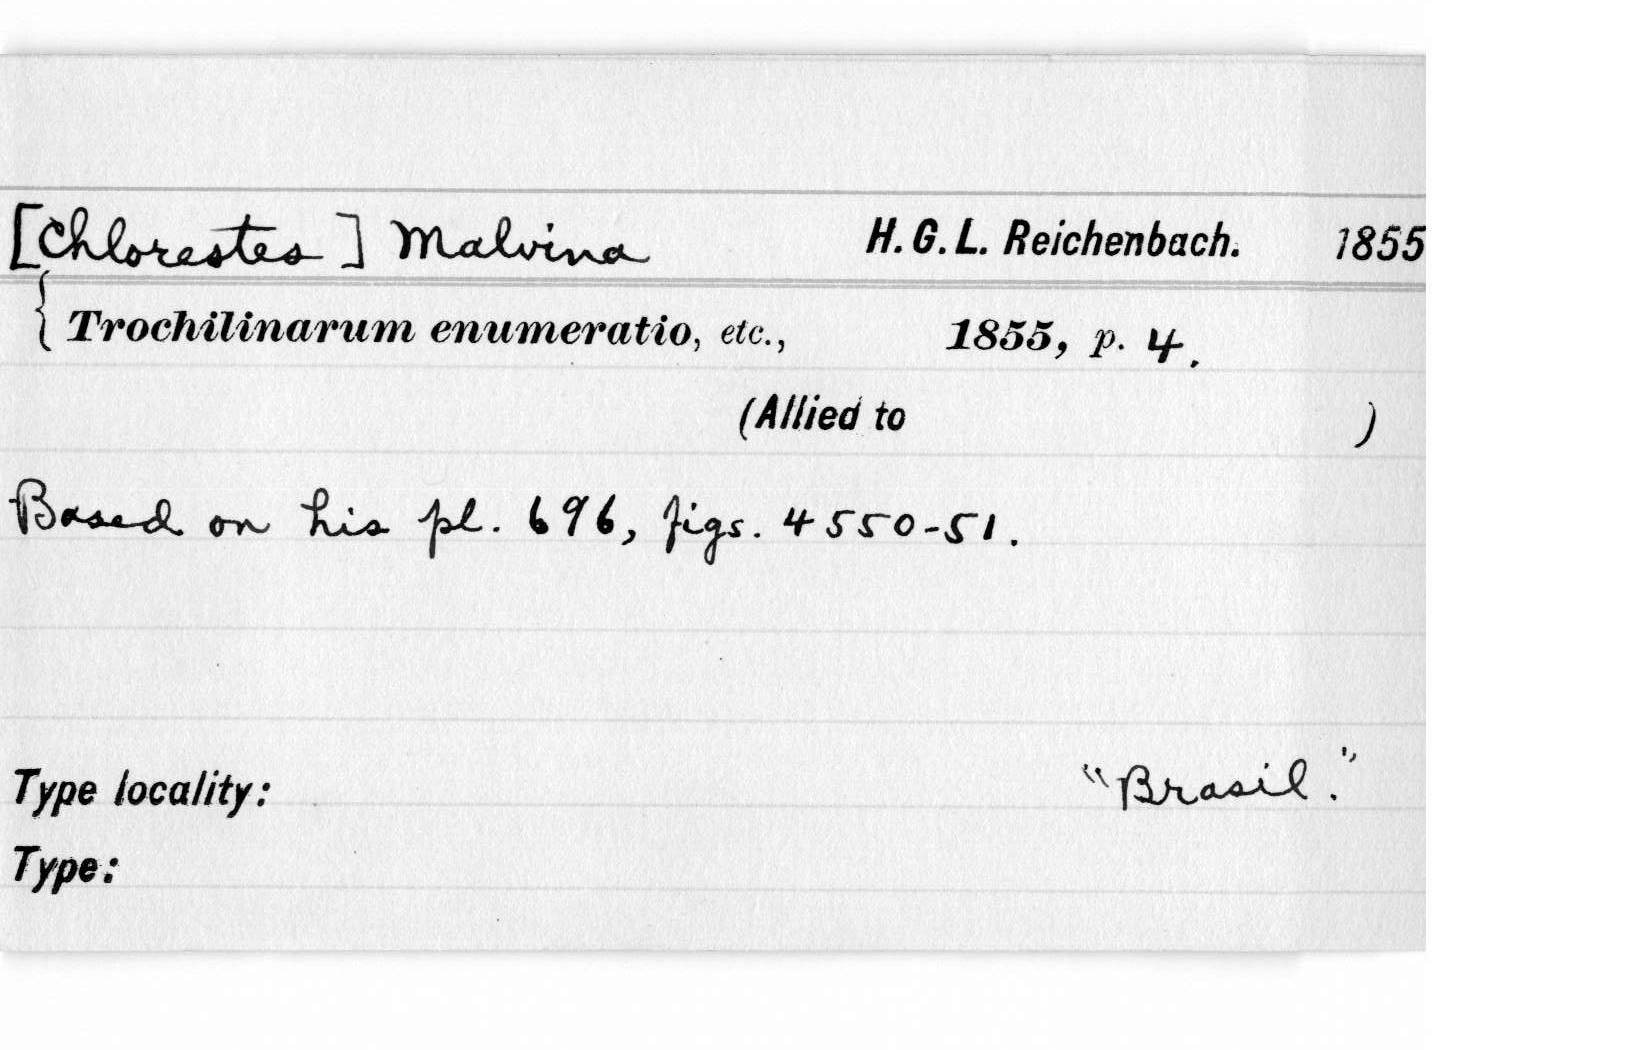 [Chlorestes] Malvina H. G. L. Reichenbach. 1855
{ Trochilinarum enumeratio, etc., 1855, p. 4.
(Allied to )
Based on his pl. 696, figs. 4550-51.
Type locality: "Brasil."
Type: